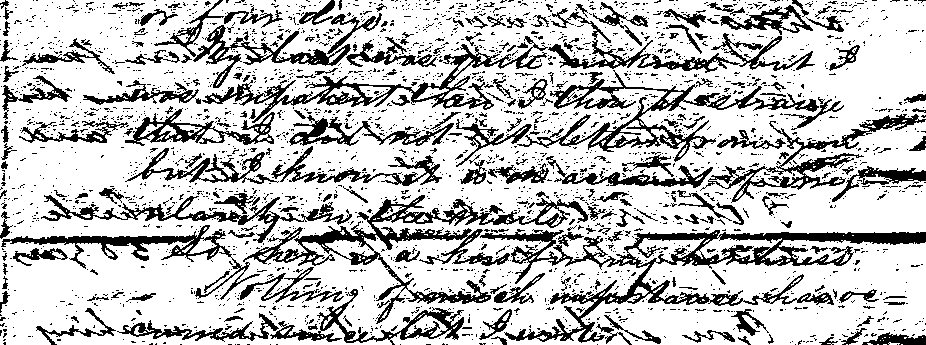 or four days.
My last was quite unkind but I
was impatient then. I thought strange
that I did not get letters from you
but I know it is on account of irreg-
ularity in the mails.
So there is a kiss for my hastiness.
Nothing of much importance has oc=
curred since last I wrote.